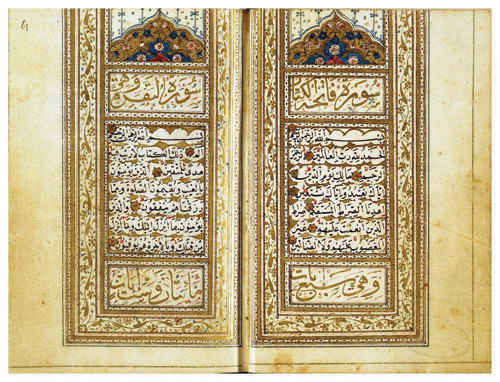 سورة فاتحة الكتاب
بسم الله الرحمن الرحيم
الحمد لله رب العالمين الرحمن
الرحيم مالك يوم الدين
اياك نعبد واياك نستعين
اهدنا الصراط المستقيم صراط
الذين انعمت عليهم غير
المغضوب عليهم ولا الضالين
وهي سبع آيات
سورة البقرة وهي
بسم الله الرحمن الرحيم
الم ذلك الكتاب لا ريب فيه
هدى للمتقين الذين يؤمنون
بالغيب ويقيمون الصلوة ومما
رزقناهم ينفقون والذين
يؤمنون بما انزل اليك وما انزل
من قبلك وبالاخرة هم يوقنون
مائتان وست آيات